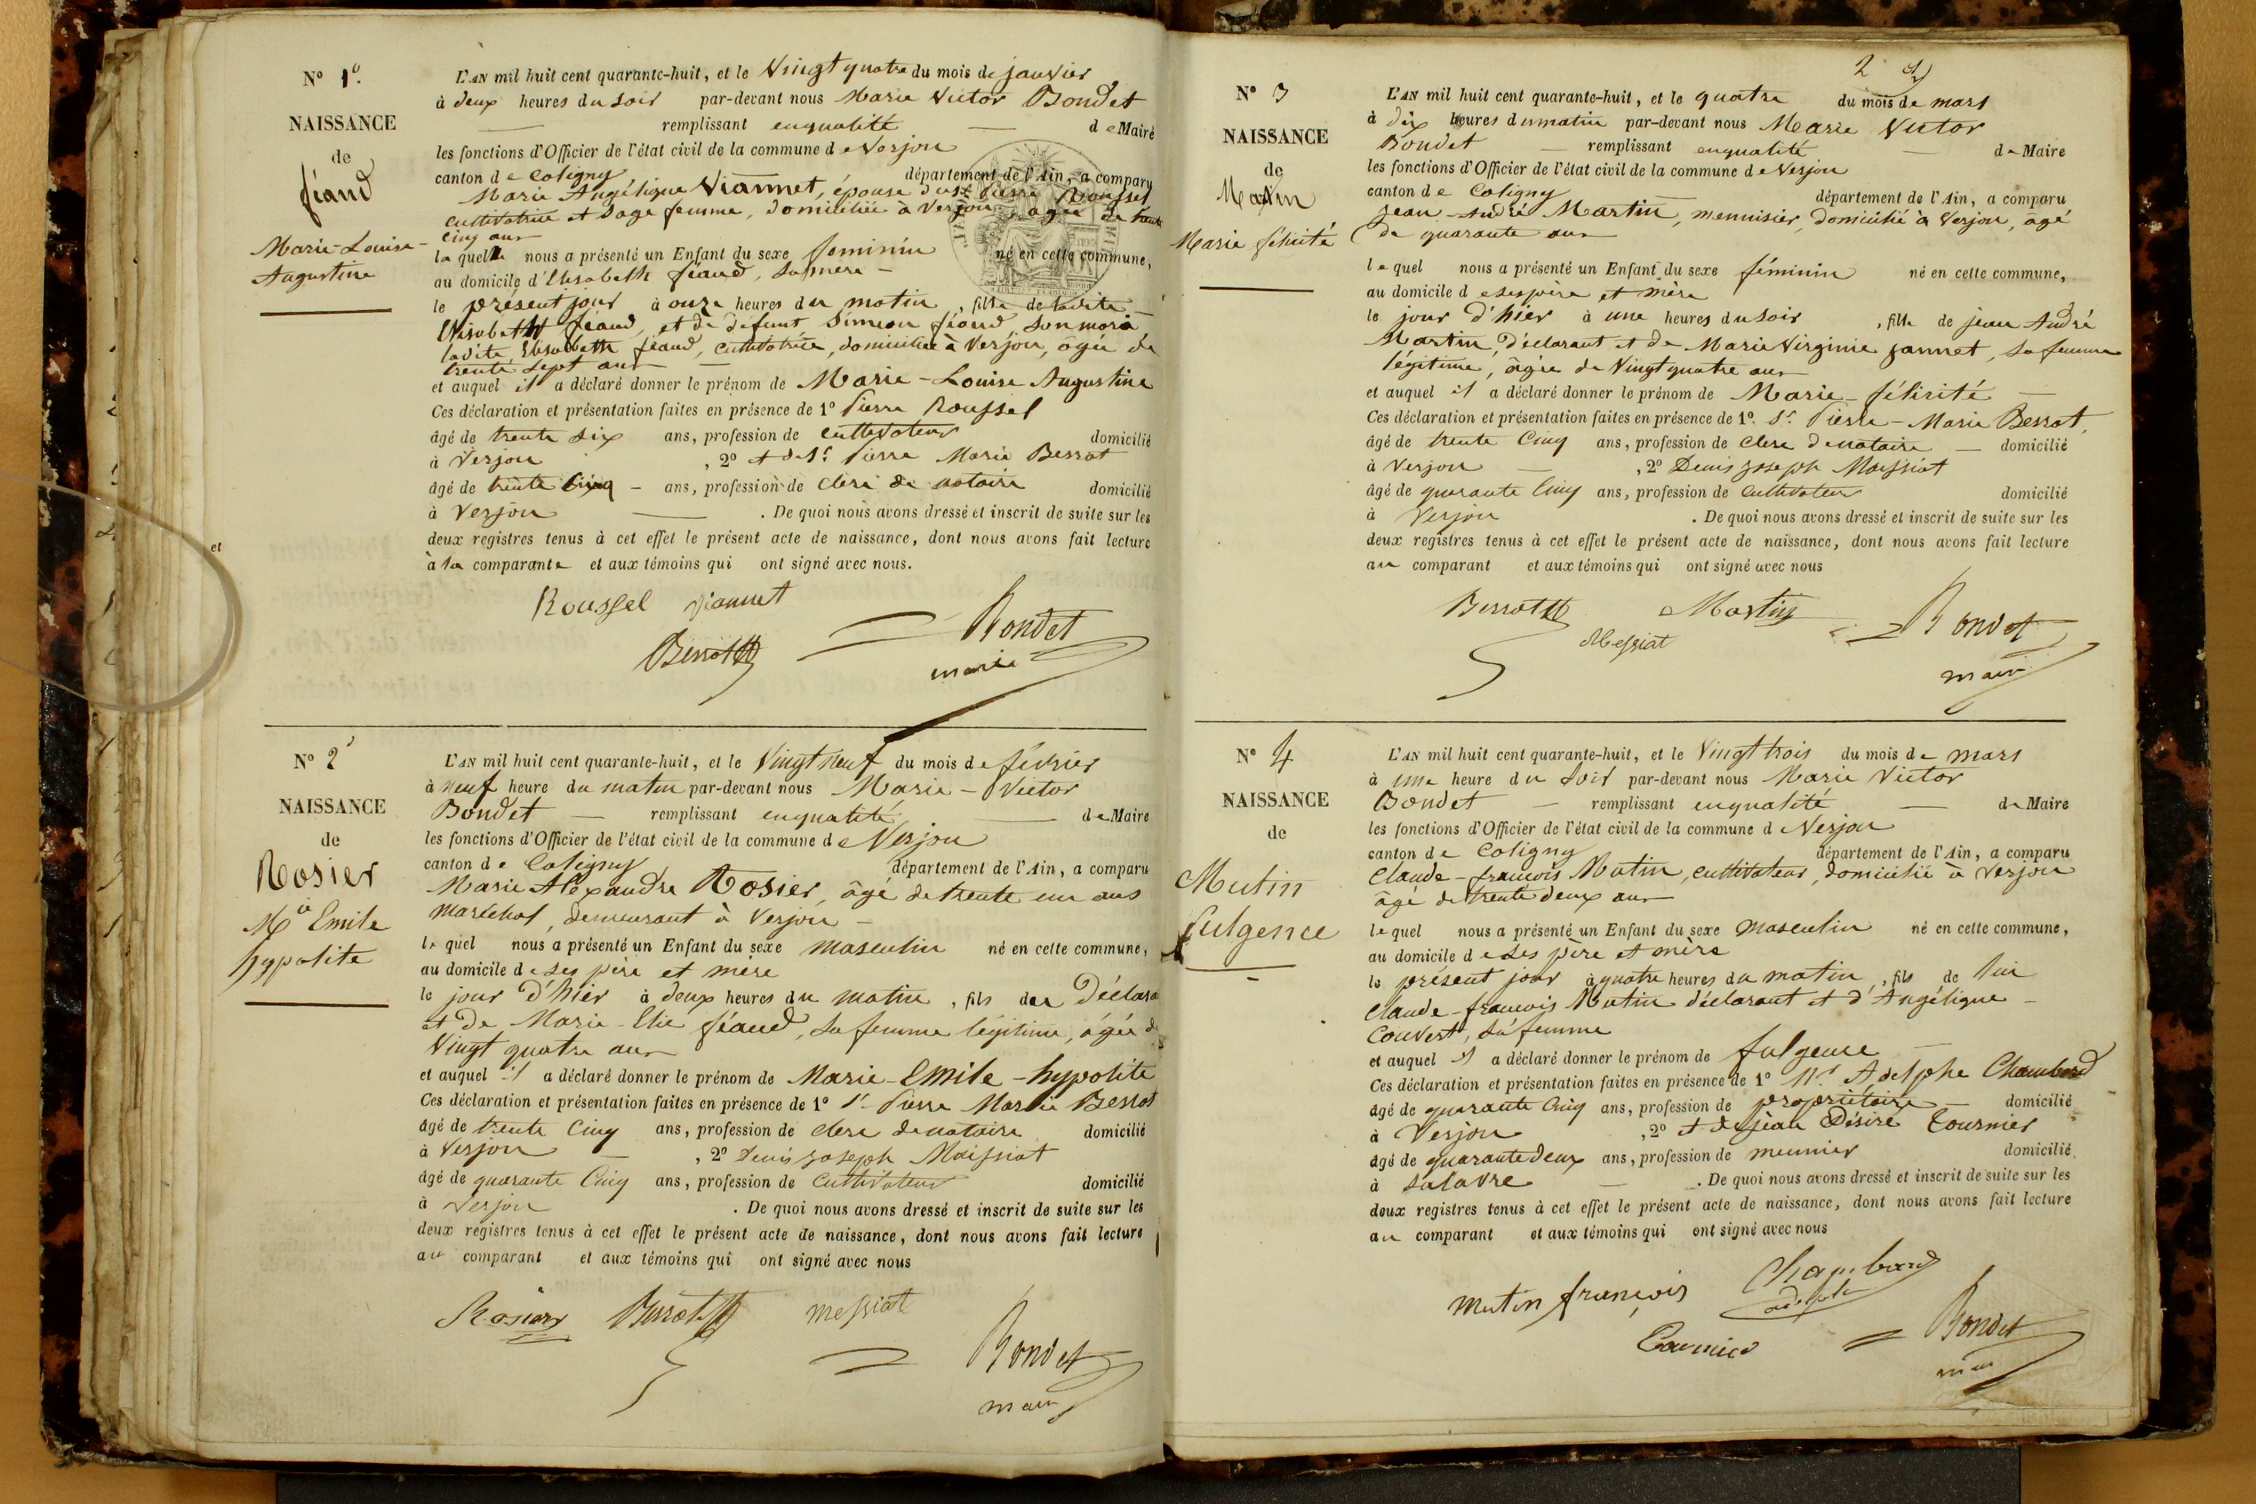 N° 1°.
NAISSANCE
de
féaud
Marie-Louise-
Augustine
L'AN mil huit cent quarante-huit, et le Vingt quatre du mois de janvier
à deux heures du soir par-devant nous Marie Victor Bondet
remplissant enqualité de Maire
les fonctions d'Officier de l'état civil de la commune de Verjon
canton de Coligny département de l'Ain, a comparu
Marie Angélique Viannet, épouse du st pierre Roussel
cultivatrice et Sage femme, domiciliée à Verjon, agée de trente
cinq ans
laquelle nous a présenté un Enfant du sexe feminin né en cette commune,
au domicile d'Elisabeth féaud, sa mère -
le présent jour à onze heures du matin, fille de ladite
Elisabeth féaud, et de défunt Siméon féaud, son mari
ladite Elisabeth féaud, cultivatrice, domiciliée à Verjon, âgée de
trente sept ans
et auquel il a déclaré donner le prénom de Marie-Louise Augustine
Ces déclaration et présentation faites en présence de 1° Pierre Roussel
âgé de trente six ans, profession de cultivateur domicilié
à Verjon, 2° et de Sr. Pierre Marie Berrot
âgé de trente cinq - ans, profession de clerc de notaire domicilié
à Verjon. De quoi nous avons dressé et inscrit de suite sur les
deux registres tenus à cet effet le présent acte de naissance, dont nous avons fait lecture
à la comparante et aux témoins qui ont signé avec nous.
Roussel viannet
Berrot
Bondet
maire
N° 2
NAISSANCE
de
Rosier
Mie Emile
hypolite
L'AN mil huit cent quarante-huit, et le Vingt neuf du mois de février
à neuf heure du matin par-devant nous Marie-Victor
Bondet remplissant enqualité de Maire
les fonctions d'Officier de l'état civil de la commune de Verjon
canton de Coligny département de l'Ain, a comparu
Marie Alexandre Rosier, âgé de trente un ans
maréchal, demeurant à Verjon -
lequel nous a présenté un Enfant du sexe masculin né en cette commune,
au domicile de ses père et mère
le jour d'hier à deux heures du matin, fils du Déclara
et de Marie-Elie féaud, sa femme légitime, âgée de
Vingt quatre ans
et auquel il a déclaré donner le prénom de Marie-Emile-hypolite
Ces déclaration et présentation faites en présence de 1° Sr. Pierre Marie Berrot
âgé de trente Cinq ans, profession de clerc de notaire domicilié
à Verjon, 2° Denis Joseph Moissiat
âgé de quarante Cinq ans, profession de Cultivateur domicilié
à Verjon. De quoi nous avons dressé et inscrit de suite sur les
deux registres tenus à cet effet le présent acte de naissance, dont nous avons fait lecture
au comparant et aux témoins qui ont signé avec nous
Rosier Berrot messiat
Bondet
maire
2
N° 3
NAISSANCE
de
Martin
Marie félicité
L'AN mil huit cent quarante-huit, et le quatre du mois de mars
à dix heures du matin par-devant nous Marie Victor
Bondet remplissant enqualité de Maire
les fonctions d'Officier de l'état civil de la commune de Verjon
canton de Coligny département de l'Ain, a comparu
jean-andré Martin, menuisier, domicilié à Verjon, âgé
de quarante ans
lequel nous a présenté un Enfant du sexe féminin né en cette commune,
au domicile de ses père et mère
le jour d'hier à une heures du soir, fille de jean André
Martin, Déclarant et de Marie Virginie jannet, sa femme
légitime, âgée de Vingt quatre ans
et auquel il a déclaré donner le prénom de Marie-félicité
Ces déclaration et présentation faites en présence de 1°. Sr. Pierre-Marie Berrot,
âgé de trente Cinq ans, profession de clerc de notaire domicilié
à Verjon, 2° Denis Joseph Moissiat
âgé de quarante Cinq ans, profession de Cultivateur domicilié
à Verjon. De quoi nous avons dressé et inscrit de suite sur les
deux registres tenus à cet effet le présent acte de naissance, dont nous avons fait lecture
au comparant et aux témoins qui ont signé avec nous
Berrot Martin
Messiat
Bondet
maire
N° 4
NAISSANCE
de
Mutin
fulgence
L'AN mil huit cent quarante-huit, et le Vingt trois du mois de mars
à une heure du soir par-devant nous Marie Victor
Bondet remplissant enqualité de Maire
les fonctions d'Officier de l'état civil de la commune de Verjon
canton de Coligny département de l'Ain, a comparu
Claude-françois Mutin, cultivateur, domicilié à Verjon
âgé de trente deux ans
lequel nous a présenté un Enfant du sexe masculin né en cette commune,
au domicile de ses père et mère
le présent jour à quatre heures du matin, fils de lui
Claude-françois Mutin déclarant et d'Angélique -
Convert, sa femme
et auquel il a déclaré donner le prénom de fulgence
Ces déclaration et présentation faites en présence de 1° Mr. Adelphe Chambard
âgé de quarante Cinq ans, profession de propriétaire domicilié
à Verjon, 2° et de jean Désiré Tournier
âgé de quarante deux ans, profession de meunier domicilié
à Salavre. De quoi nous avons dressé et inscrit de suite sur les
deux registres tenus à cet effet le présent acte de naissance, dont nous avons fait lecture
au comparant et aux témoins qui ont signé avec nous
Mutin françois Chambard
adelphe
Tournier
Bondet
maire